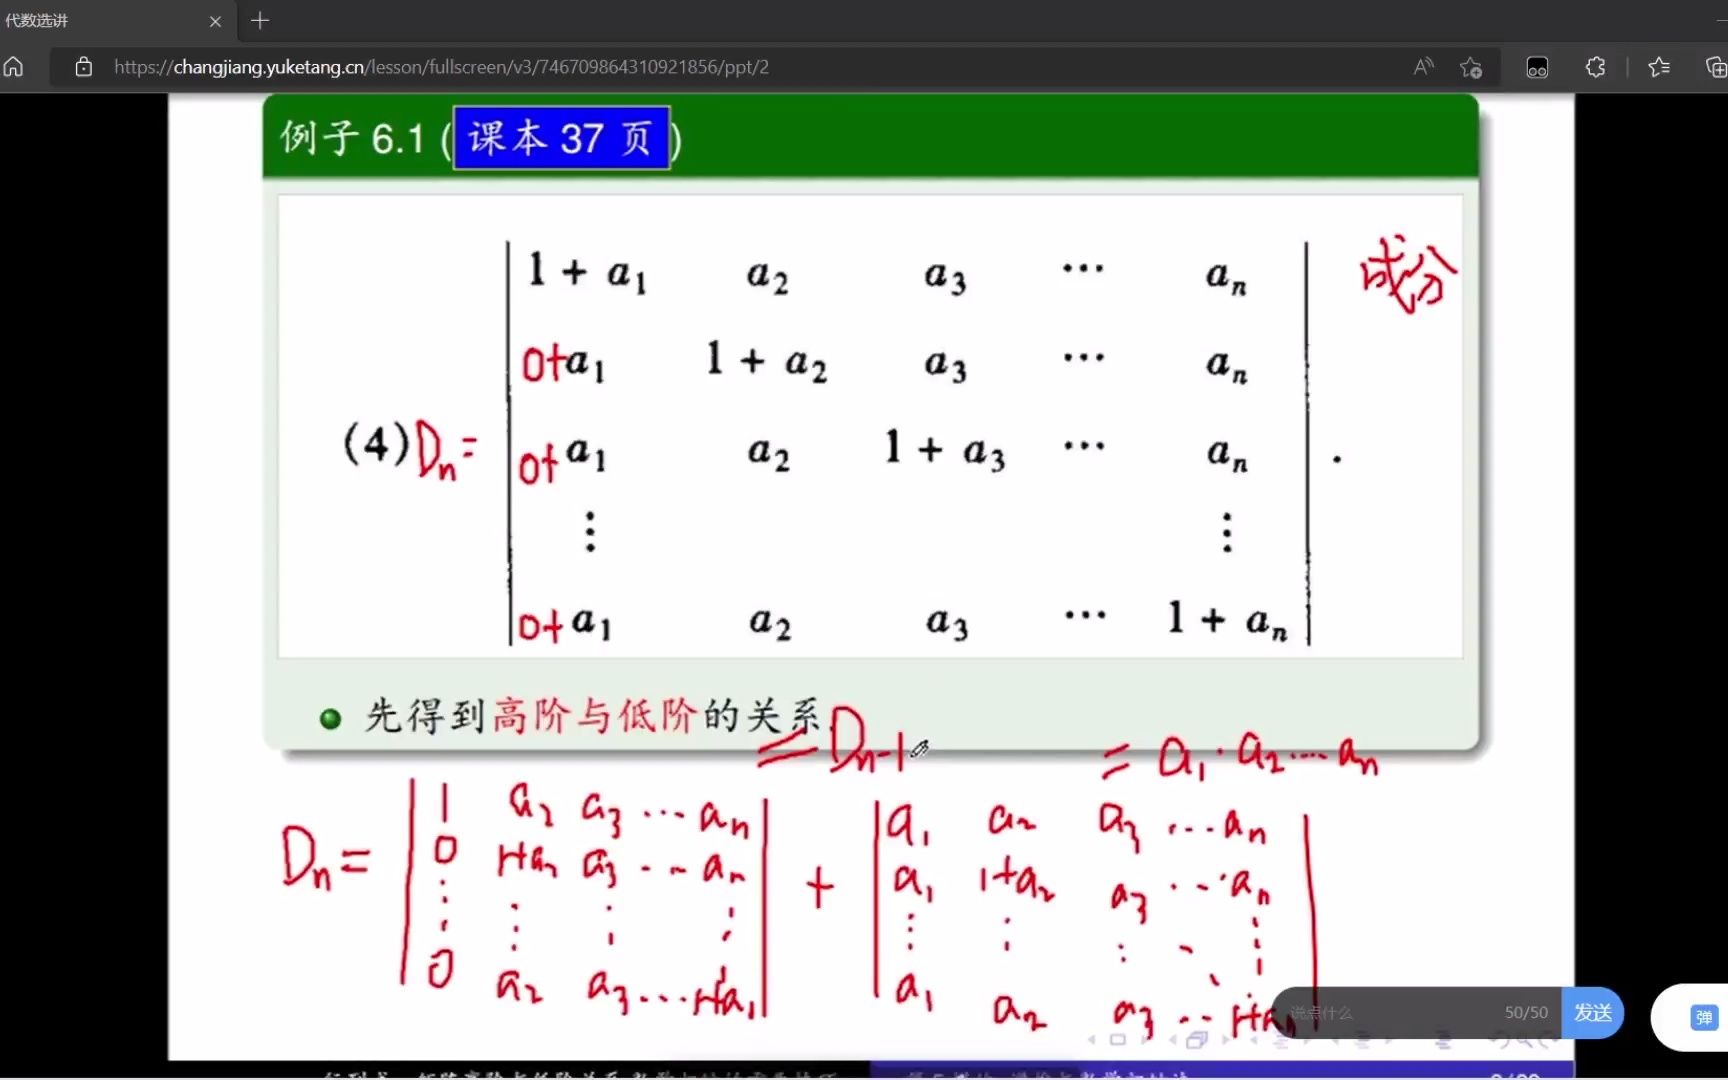 代数选讲
https://changjiang.yuketang.cn/lesson/fullscreen/v3/746709864310921856/ppt/2
例子 6.1 (课本 37 页)
1 + a₁ a₂ a₃ ⋯ aₙ 成分
0+a₁ 1 + a₂ a₃ ⋯ aₙ
(4) Dₙ = 0+a₁ a₂ 1 + a₃ ⋯ aₙ .
⋮ ⋮
0+a₁ a₂ a₃ ⋯ 1 + aₙ
先得到高阶与低阶的关系
= Dₙ₋₁ = a₁·a₂⋯aₙ
Dₙ = | 1 a₂ a₃ ⋯ aₙ | + | a₁ a₂ a₃ ⋯ aₙ |
0 1+a₂ a₃ ⋯ aₙ a₁ 1+a₂ a₃ ⋯ aₙ
⋮ ⋮ ⋮ ⋮ ⋮ ⋮ ⋮ ⋱ ⋮
0 a₂ a₃ ⋯ 1+a₁ a₁ a₂ a₃ ⋯
说点什么 50/50 发送 弹